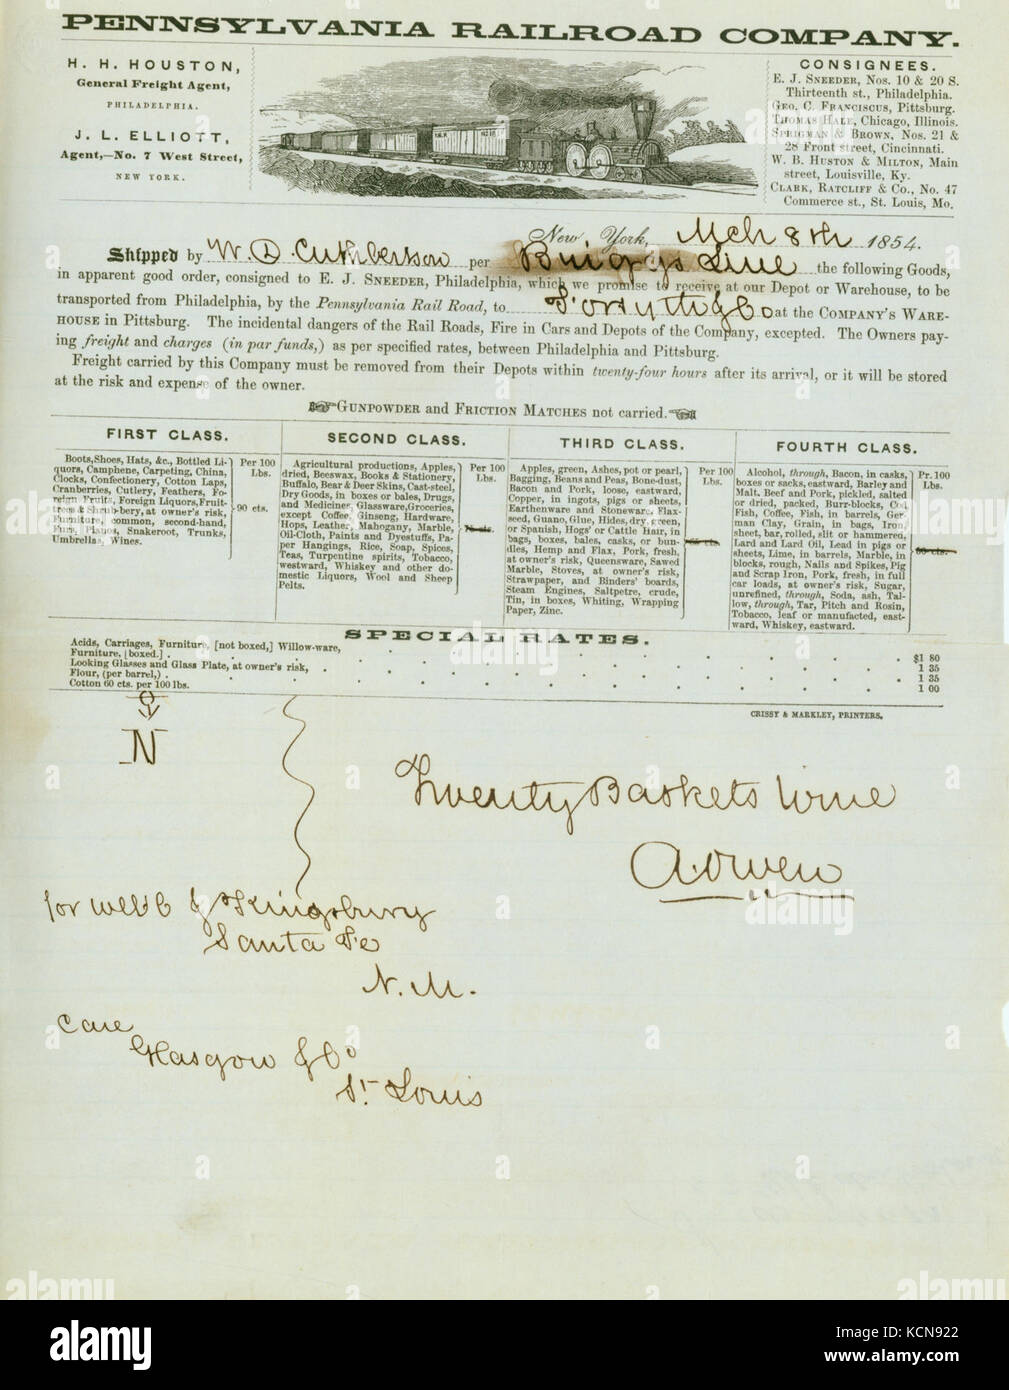 PENNSYLVANIA RAILROAD COMPANY.
H. H. HOUSTON,
General Freight Agent,
PHILADELPHIA.
J. L. ELLIOTT,
Agent,—No. 7 West Street,
NEW YORK.
CONSIGNEES.
E. J. SNEEDER, Nos. 10 & 20 S.
Thirteenth st., Philadelphia.
GEO. C. FRANCISCUS, Pittsburg.
THOMAS HALE, Chicago, Illinois.
SPRIGMAN & BROWN, Nos. 21 &
28 Front street, Cincinnati.
W. B. HUSTON & MILTON, Main
street, Louisville, Ky.
CLARK, RATCLIFF & Co., No. 47
Commerce st., St. Louis, Mo.
New York, Mch 8th 1854.
Shipped by W. D. Cuthbertson per Line the following Goods,
in apparent good order, consigned to E. J. SNEEDER, Philadelphia, which we promise to receive at our Depot or Warehouse, to be
transported from Philadelphia, by the Pennsylvania Rail Road, to Forsyth & Co at the COMPANY'S WARE-
HOUSE in Pittsburg. The incidental dangers of the Rail Roads, Fire in Cars and Depots of the Company, excepted. The Owners pay-
ing freight and charges (in par funds,) as per specified rates, between Philadelphia and Pittsburg.
Freight carried by this Company must be removed from their Depots within twenty-four hours after its arrival, or it will be stored
at the risk and expense of the owner.
GUNPOWDER and FRICTION MATCHES not carried.
FIRST CLASS.
Boots, Shoes, Hats, &c., Bottled Li-
quors, Camphene, Carpeting, China,
Clocks, Confectionery, Cotton Laps,
Cranberries, Cutlery, Feathers, Fo-
reign Fruits, Foreign Liquors, Fruit-
trees & Shrub-bery, at owner's risk,
Furniture, common, second-hand,
Furs, Pianos, Snakeroot, Trunks,
Umbrellas, Wines.
Per 100
Lbs.
90 cts.
SECOND CLASS.
Agricultural productions, Apples,
dried, Beeswax, Books & Stationery,
Buffalo, Bear & Deer Skins, Cast-steel,
Dry Goods, in boxes or bales, Drugs,
and Medicines, Glassware, Groceries,
except Coffee, Ginseng, Hardware,
Hops, Leather, Mahogany, Marble,
Oil-Cloth, Paints and Dyestuffs, Pa-
per Hangings, Rice, Soap, Spices,
Teas, Turpentine spirits, Tobacco,
westward, Whiskey and other do-
mestic Liquors, Wool and Sheep
Pelts.
Per 100
Lbs.
cts.
THIRD CLASS.
Apples, green, Ashes, pot or pearl,
Bagging, Beans and Peas, Bone-dust,
Bacon and Pork, loose, eastward,
Copper, in ingots, pigs or sheets,
Earthenware and Stoneware, Flax-
seed, Guano, Glue, Hides, dry, green,
or Spanish, Hogs' or Cattle Hair, in
bags, boxes, bales, casks, or bun-
dles, Hemp and Flax, Pork, fresh,
at owner's risk, Queensware, Sawed
Marble, Stoves, at owner's risk,
Strawpaper, and Binders' boards,
Steam Engines, Saltpetre, crude,
Tin, in boxes, Whiting, Wrapping
Paper, Zinc.
Per 100
Lbs.
cts.
FOURTH CLASS.
Alcohol, through, Bacon, in casks,
boxes or sacks, eastward, Barley and
Malt. Beef and Pork, pickled, salted
or dried, packed, Burr-blocks, Cod
Fish, Coffee, Fish, in barrels, Ger-
man Clay, Grain, in bags, Iron,
sheet, bar, rolled, slit or hammered,
Lard and Lard Oil, Lead in pigs or
sheets, Lime, in barrels, Marble, in
blocks, rough, Nails and Spikes, Pig
and Scrap Iron, Pork, fresh, in full
car loads, at owner's risk, Sugar,
unrefined, through, Soda, ash, Tal-
low, through, Tar, Pitch and Rosin,
Tobacco, leaf or manufacted, east-
ward, Whiskey, eastward.
Pr. 100
Lbs.
cts.
SPECIAL RATES.
Acids, Carriages, Furniture, [not boxed,] Willow-ware, $1 80
Furniture, [boxed.] 1 35
Looking Glasses and Glass Plate, at owner's risk, 1 35
Flour, (per barrel,) 1 00
Cotton 60 cts. per 100 lbs.
CRISSY & MARKLEY, PRINTERS.
N
Twenty Baskets Wine
A. Owen
for Webb & Kingsbury
Santa Fe
N. M.
Care
Glasgow & Co
St Louis
alamy
Image ID: KCN922
www.alamy.com